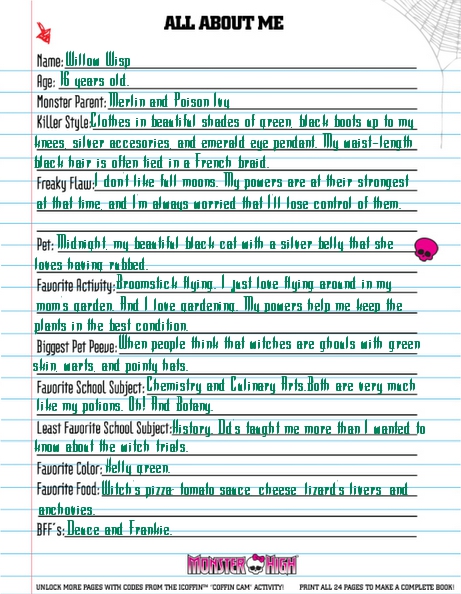 ALL ABOUT ME
Name: Willow Wisp
Age: 16 years old.
Monster Parent: Merlin and Poison Ivy
Killer Style: Clothes in beautiful shades of green, black boots up to my
knees, silver accesories, and emerald eye pendant. My waist-length
black hair is often tied in a French braid.
Freaky Flaw: I don't like full moons. My powers are at their strongest
at that time, and I'm always worried that I'll lose control of them.
Pet: Midnight, my beautiful black cat with a silver belly that she
loves having rubbed.
Favorite Activity: Broomstick flying. I just love flying around in my
mom's garden. And I love gardening. My powers help me keep the
plants in the best condition.
Biggest Pet Peeve: When people think that witches are ghouls with green
skin, warts, and pointy hats.
Favorite School Subject: Chemistry and Culinary Arts.Both are very much
like my potions. Oh! And Botany.
Least Favorite School Subject: History. Dd's taught me more than I wanted to
know about the witch trials.
Favorite Color: Kelly green.
Favorite Food: Witch's pizza- tomato sauce, cheese, lizard's livers, and
anchovies.
BFF's: Deuce and Frankie.
MONSTER HIGH
UNLOCK MORE PAGES WITH CODES FROM THE ICOFFIN™ "COFFIN CAM" ACTIVITY! PRINT ALL 24 PAGES TO MAKE A COMPLETE BOOK!